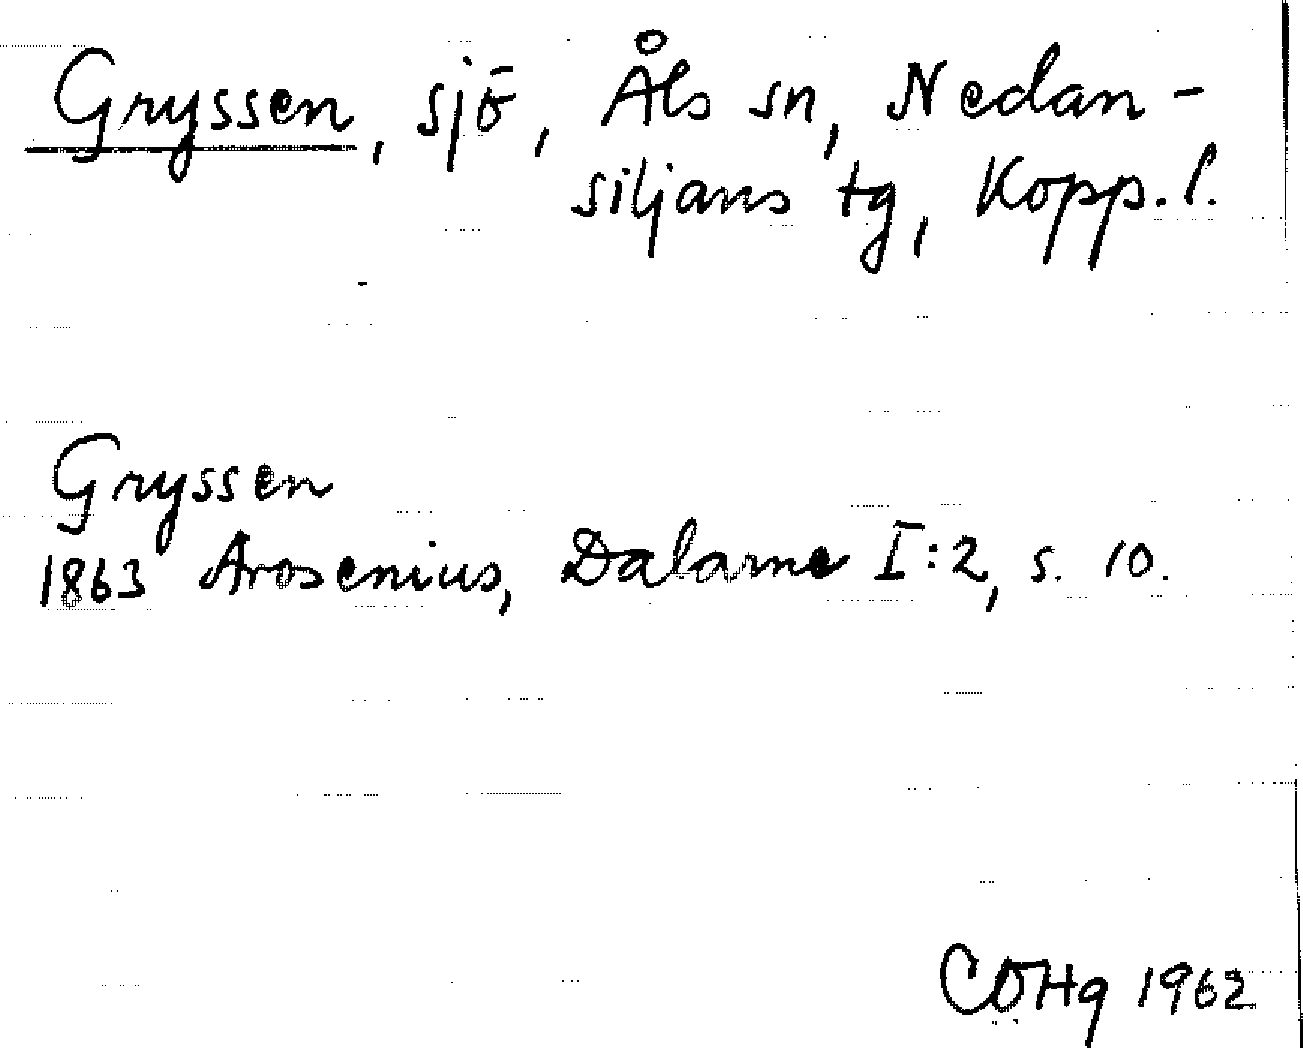 Gryssen, sjö, Åls sn, Nedan-
siljans tg, Kopp. l.
Gryssen
1863 Arosenius, Dalarne I:2, s. 10.
COHg 1962